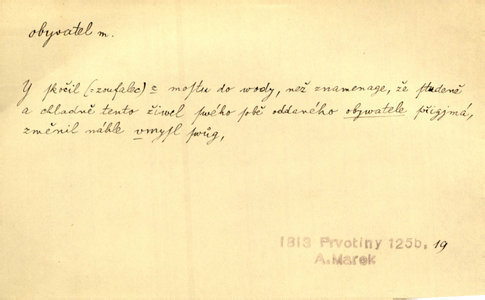 obyvatel m.
Y skočil (: zoufalec) z mostu do wody, než znamenage, že studeně
a chladně tento žiwel swého sobě oddaného obywatele přigjmá,
změnil náhle vmysl swůg,
1813 Prvotiny 125b, 19
A. Marek